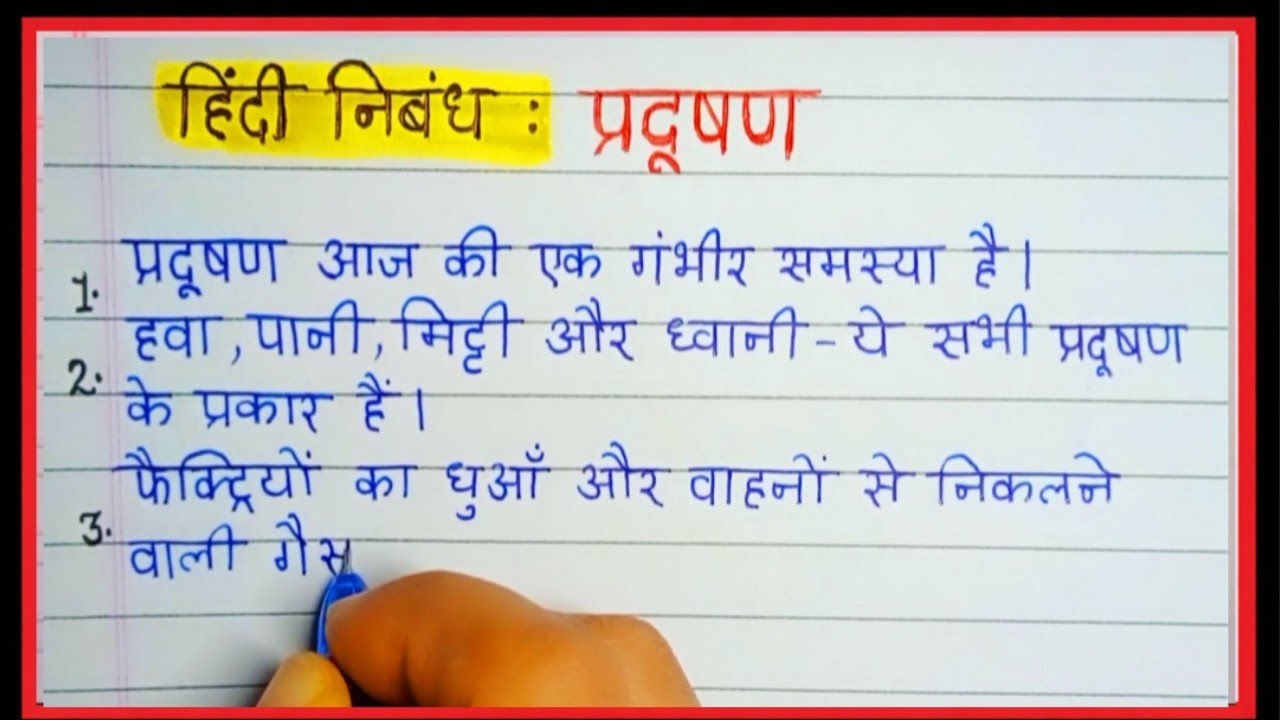 हिंदी निबंध : प्रदूषण
1. प्रदूषण आज की एक गंभीर समस्या है।
2. हवा, पानी, मिट्टी और ध्वानी - ये सभी प्रदूषण
के प्रकार हैं।
3. फैक्ट्रियों का धुआँ और वाहनों से निकलने
वाली गैस